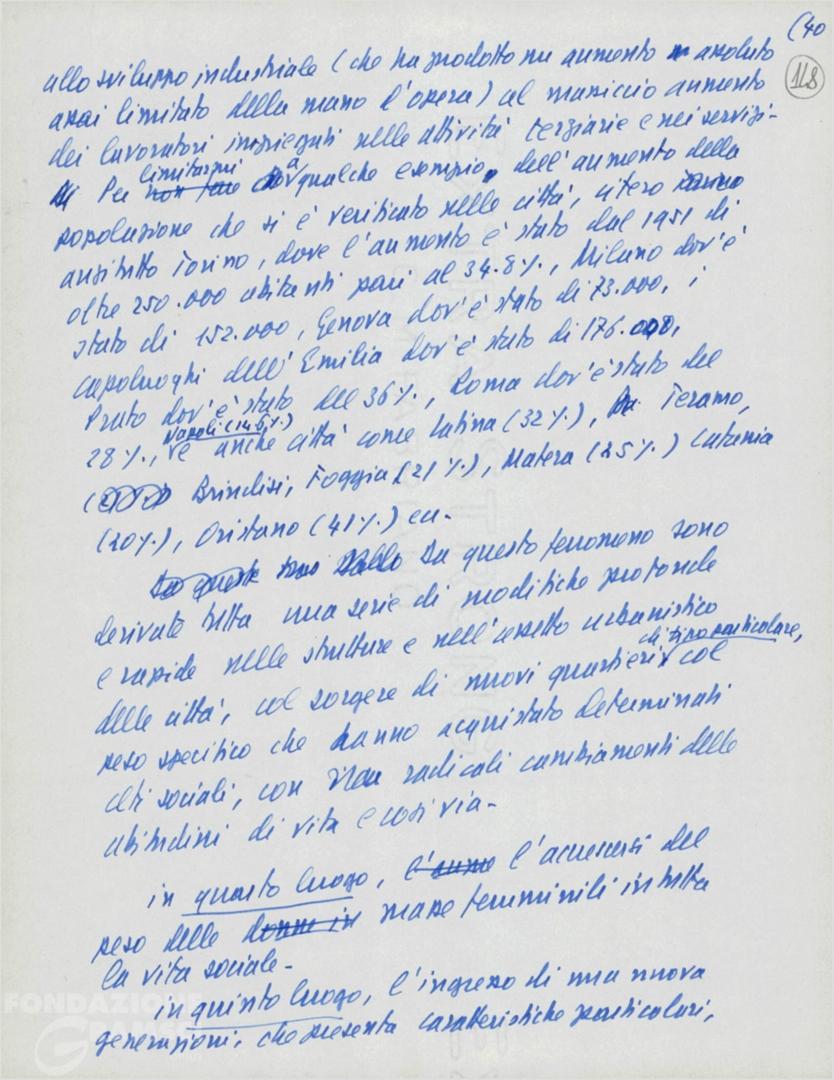 (40
118
allo sviluppo industriale (che ha prodotto un aumento assoluto
assai limitato della mano d'opera) al massiccio aumento
dei lavoratori impiegati nelle attività terziarie e nei servizi-
Per limitarmi a qualche esempio, dell'aumento della
popolazione che si è verificato nelle città, citerò
anzitutto Torino, dove l'aumento è stato dal 1951 di
oltre 250.000 abitanti pari al 34.8%, Milano dov'è
stato di 152.000, Genova dov'è stato di 73.000, i
capoluoghi dell'Emilia dov'è stato di 176.000,
Prato dov'è stato del 36%, Roma dov'è stato del
28%, Napoli (14.6%) e anche città come Latina (32%), Teramo,
Brindisi, Foggia (21%), Matera (25%) Catania
(20%), Oristano (41%) ecc-
Da questo fenomeno sono
derivate tutta una serie di modifiche profonde
e rapide nelle strutture e nell'assetto urbanistico
delle città, col sorgere di nuovi quartieri di tipo particolare, col
peso specifico che hanno acquistato determinati
ceti sociali, con radicali cambiamenti delle
abitudini di vita e così via-
in quarto luogo, l'accrescersi del
peso delle masse femminili in tutta
la vita sociale-
in quinto luogo, l'ingresso di una nuova
generazioni, che presenta caratteristiche particolari,
FONDAZIONE
GRAMSCI